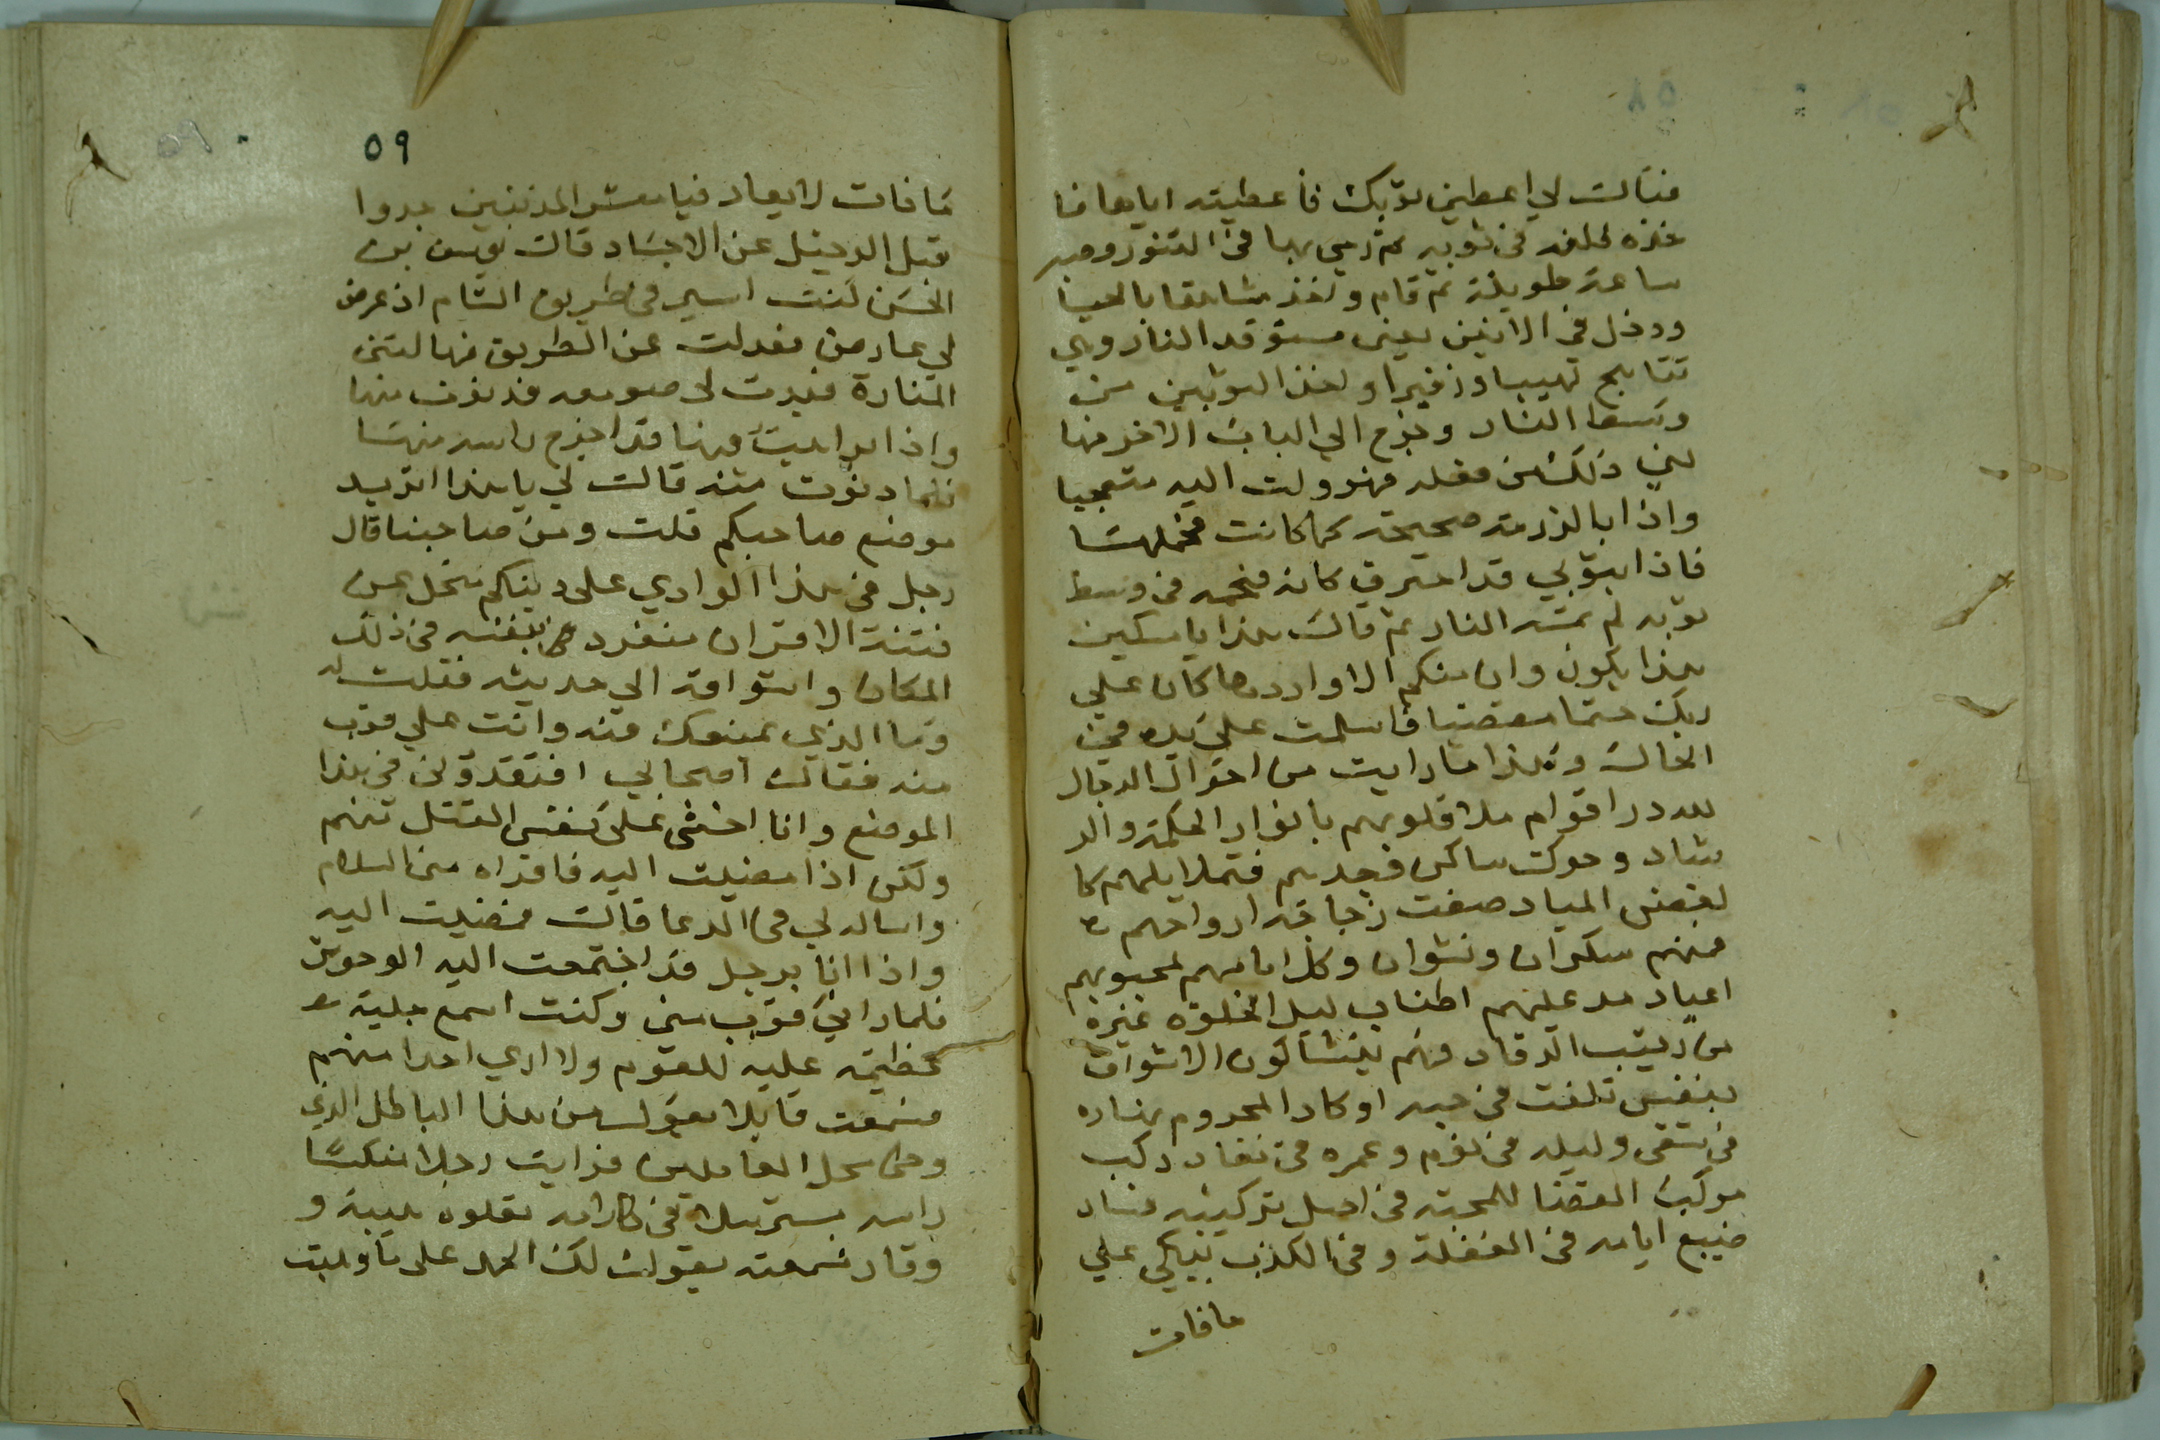 فقالت لي اعطيني ثوبك فأعطيته اياها فا
خذه لحلفه في ثوبه ثم رمي بها في التنور وصبر
ساعة طويلة ثم قام واخذ
ودخل في الاتين يعني مستوقد النار وهي
تتاجج لهيبا وزفيرا واخذ الثوبين من
وسط النار وخرج الي الباب الاخر منها
ذلك من فعله فهرولت اليه متعجبا
واذا بالرزمة صحيحة كما كانت فحملها
فاذا بثوبي قد احترق كانه فحمه في وسط
ثوبه لم تمسه النار ثم قال هذا يا مسكين
هذا يكون وان منكم الا واردها كان علي
ربك حتما مقضيا فاسلمت علي يده في
الحال وهذا ما رايت من احوال الرجال
لله در اقوام ملا قلوبهم بانوار الحكمة والر
شاد وحرك ساكن
لغصن المياد صفت زجاجة ارواحهم
فمنهم سكران ونشوان وكل ايامهم لمحبوبهم
اعياد مد عليهم اطناب ليل الخلوة غيرة
من رقيب الرقاد فهم يتشاكون الاشواق
بنفس تلفت في حبه او كاد المحروم نهاره
في شقي وليله في نوم وعمره في نفاد ركب
موكب القضا للمحبة في اصل تركيبه فساد
ضيع ايامه في الغفلة وفي الكذب يبكي علي
ما فات
٥٩
ما فات لا يعاد فيا معشر المذنبين جدوا
قبل الرحيل عن الاجساد قال يوسف بن
الحسن كنت اسير في طريق الشام اذ عرض
لي عارض فعدلت عن الطريق فهالتني
المنارة فبدت لي صومعه فدنوت منها
واذا براهب فيها قد اخرج راسه منها
فلما دنوت منه قال لي يا هذا اتريد
موضع صاحبكم قلت ومن صاحبنا قال
رجل في هذا الوادي على دينكم متخل عن
فتنة الاقران منفرد بنفسه في ذلك
المكان واشواقه الي حديثه فقلت له
وما الذي يمنعك منه وانت علي قرب
منه فقال اصحابي افتقدوني في هذا
الموضع وانا اخشى على نفس القتل منهم
ولكن اذا مضيت اليه فاقراه مني السلام
واساله لي في الدعا قال فمضيت اليه
واذا انا برجل قد اجتمعت اليه الوحوش
فلما راني قرب مني وكنت اسمع جلبة
عظيمه عليه للقوم ولا اري احدا منهم
فسمعت قايلا يقول من هذا الباطل الذي
وطئ محل العاملين فرايت رجلا منكسا
راسه مسترسلا في كلامه تعلوه هيبة و
وقار فسمعته يقول لك الحمد على ما وهبت